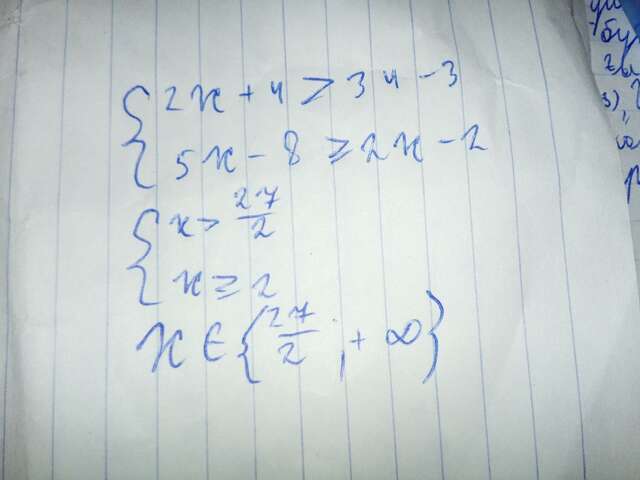 {2x+4>34-3
5x-8≥2x-2
{x>27/2
x≥2
x∈{27/2;+∞}